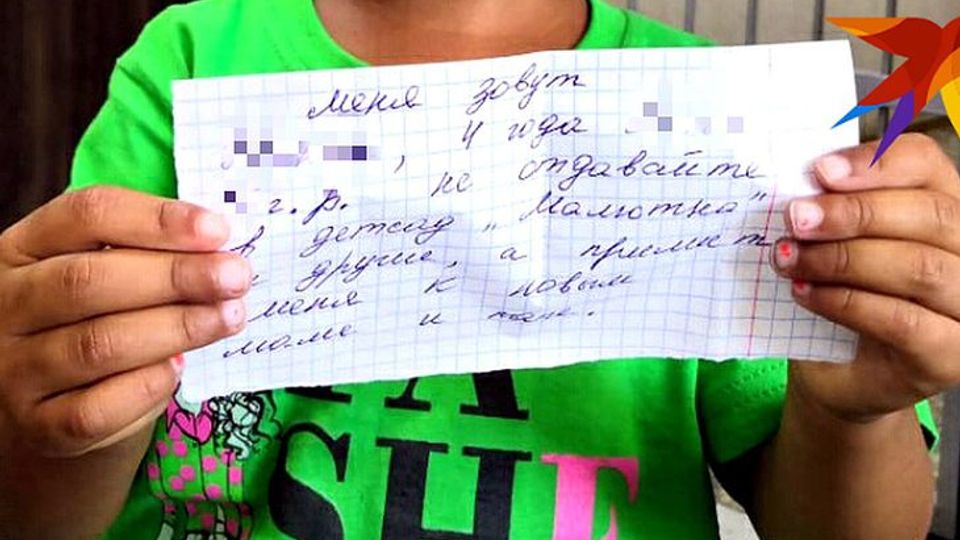 Меня зовут
, 4 года
г. р. не отдавайте
в детсад „Малютка"
и другие, а
меня к новым
маме и папе.
A
SHE